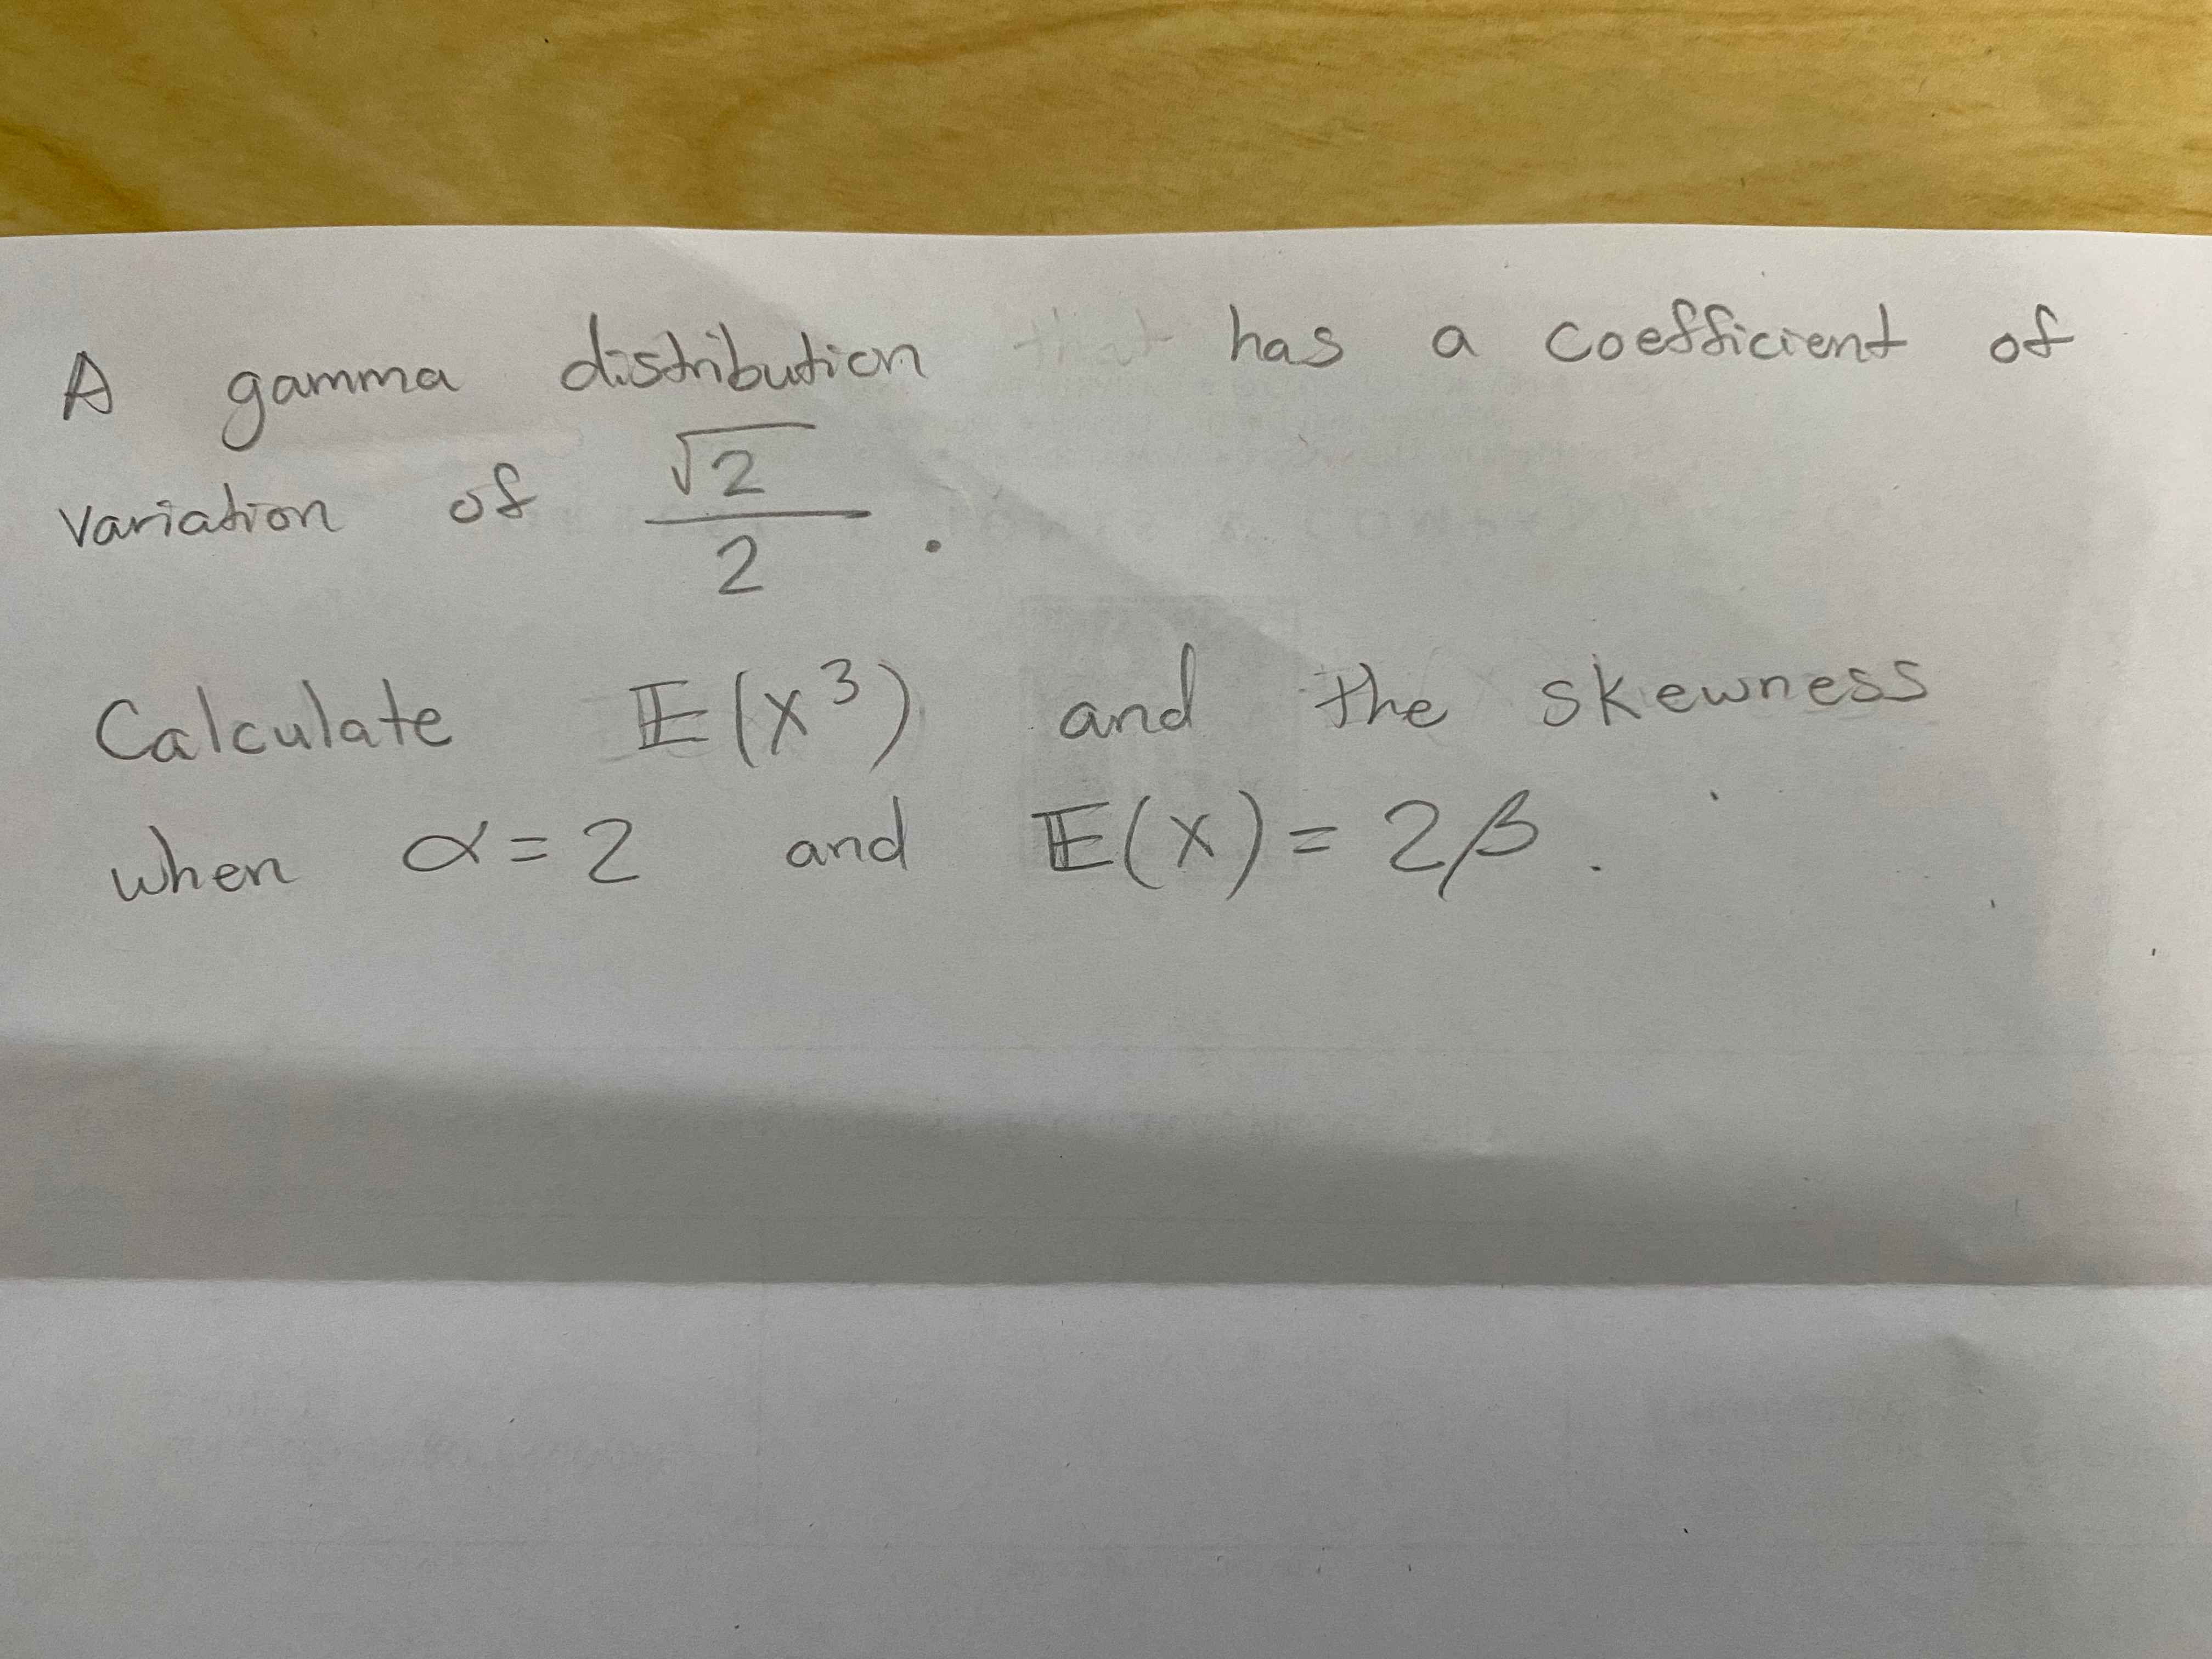 A gamma distribution has a coefficient of
variation of √2/2.
Calculate 𝔼(X³) and the skewness
when α = 2 and 𝔼(X) = 2β.